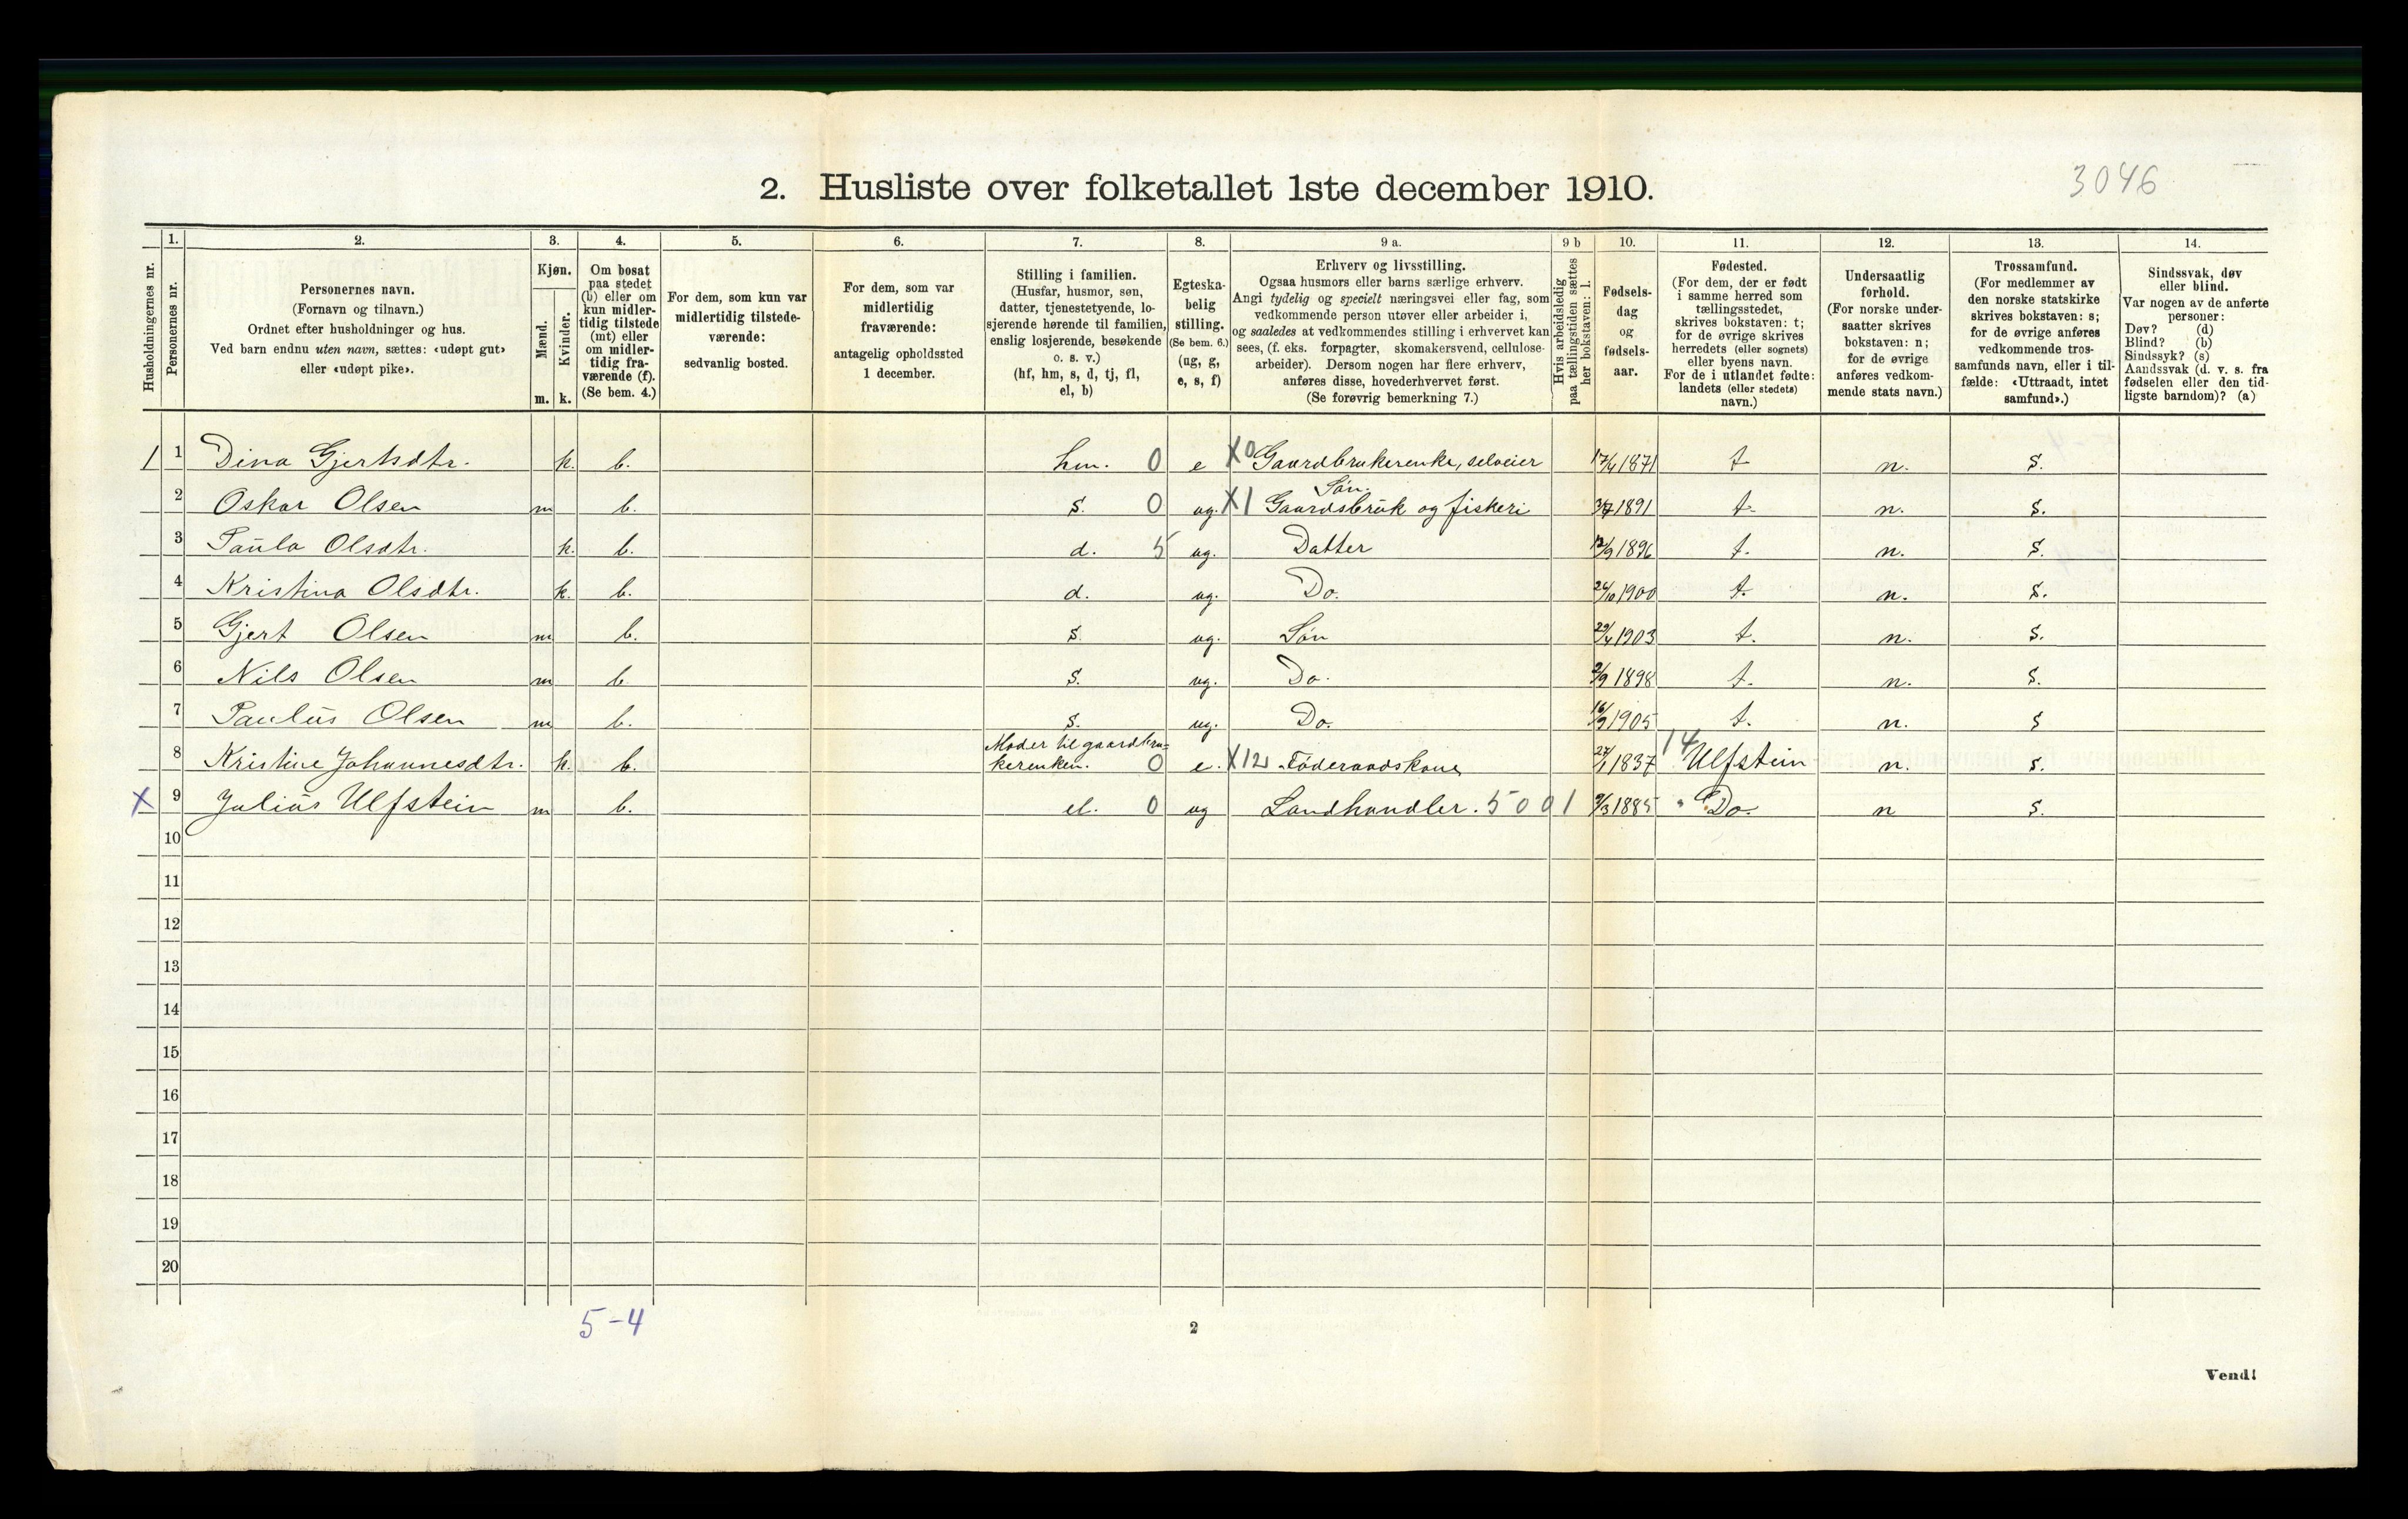 3046
2. Husliste over folketallet 1ste december 1910.
Husholdningernes nr.
1. Personernes nr.
2. Personernes navn.
(Fornavn og tilnavn.)
Ordnet efter husholdninger og hus.
Ved barn endnu uten navn, sættes: «udøpt gut»
eller «udøpt pike».
3. Kjøn.
Mænd. Kvinder.
m. k.
4. Om bosat
paa stedet
(b) eller om
kun midler-
tidig tilstede
(mt) eller
om midler-
tidig fra-
værende (f).
(Se bem. 4.)
5. For dem, som kun var
midlertidig tilstede-
værende:
sedvanlig bosted.
6. For dem, som var
midlertidig
fraværende:
antagelig opholdssted
1 december.
7. Stilling i familien.
(Husfar, husmor, søn,
datter, tjenestetyende, lo-
sjerende hørende til familien,
enslig losjerende, besøkende
o. s. v.)
(hf, hm, s, d, tj, fl,
el, b)
8. Egteska-
belig
stilling.
(Se bem. 6.)
(ug, g,
e, s, f)
9 a. Erhverv og livsstilling.
Ogsaa husmors eller barns særlige erhverv.
Angi tydelig og specielt næringsvei eller fag, som
vedkommende person utøver eller arbeider i,
og saaledes at vedkommendes stilling i erhvervet kan
sees, (f. eks. forpagter, skomakersvend, cellulose-
arbeider). Dersom nogen har flere erhverv,
anføres disse, hovederhvervet først.
(Se forøvrig bemerkning 7.)
9 b Hvis arbeidsledig
paa tællingstiden sættes
her bokstaven: l.
10. Fødsels-
dag
og
fødsels-
aar.
11. Fødested.
(For dem, der er født
i samme herred som
tællingsstedet,
skrives bokstaven: t;
for de øvrige skrives
herredets (eller sognets)
eller byens navn.
For de i utlandet fødte:
landets (eller stedets)
navn.)
12. Undersaatlig
forhold.
(For norske under-
saatter skrives
bokstaven: n;
for de øvrige
anføres vedkom-
mende stats navn.)
13. Trossamfund.
(For medlemmer av
den norske statskirke
skrives bokstaven: s;
for de øvrige anføres
vedkommende tros-
samfunds navn, eller i til-
fælde: «Uttraadt, intet
samfund».)
14. Sindssvak, døv
eller blind.
Var nogen av de anførte
personer:
Døv? (d)
Blind? (b)
Sindssyk? (s)
Aandssvak (d. v. s. fra
fødselen eller den tid-
ligste barndom)? (a)
1 1 Dina Gjertsdtr. k. b. hm. 0 e X0 Gaardbrukerenke, selveier 17/4 1871 t n. s.
2 Oskar Olsen m b. s. 0 ug. X1 Søn. Gaardsbruk og fiskeri 3/7 1891 t. n. s.
3 Paula Olsdtr. k. b. d. 5 ug. Datter 12/9 1896 t. n. s.
4 Kristina Olsdtr. k. b. d. ug. Do. 24/10 1900 t. n. s.
5 Gjert Olsen m b. s ug. Søn 29/4 1903 t. n. s.
6 Nils Olsen m b. s. ug. Do. 2/9 1898 t. n. s.
7 Paulus Olsen m b. s. ug. Do. 16/9 1905 t. n. s
8 Kristine Johannesdtr. k. b. Moder til gaardbru-
kerenken. 0 e. X12 Föderaadskone 27/1 1837 14 Ulfstein n. s.
X 9 Julius Ulfstein m b. el. 0 ug Landhandler. 5001 9/3 1885 " Do. n s.
10
11
12
13
14
15
16
17
18
19
20
5-4
2
Vend!